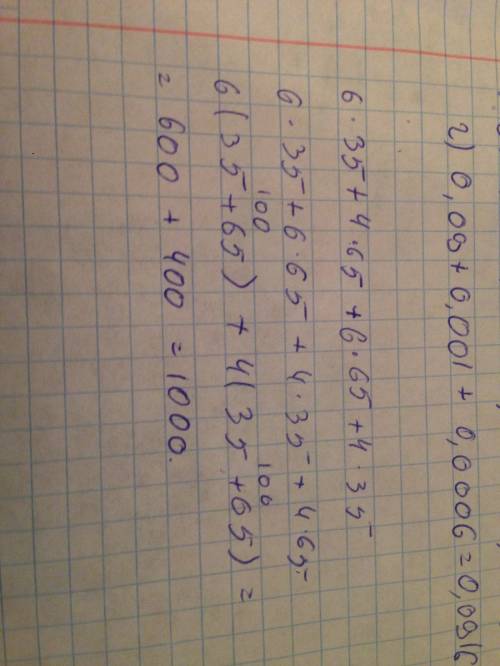 г) 0,09 + 0,001 + 0,0006 = 0,0916
6 · 35 + 4 · 65 + 6 · 65 + 4 · 35
6 · 35 + 6 · 65 + 4 · 35 + 4 · 65
100 100
6 (35 + 65) + 4 (35 + 65) =
= 600 + 400 = 1000.